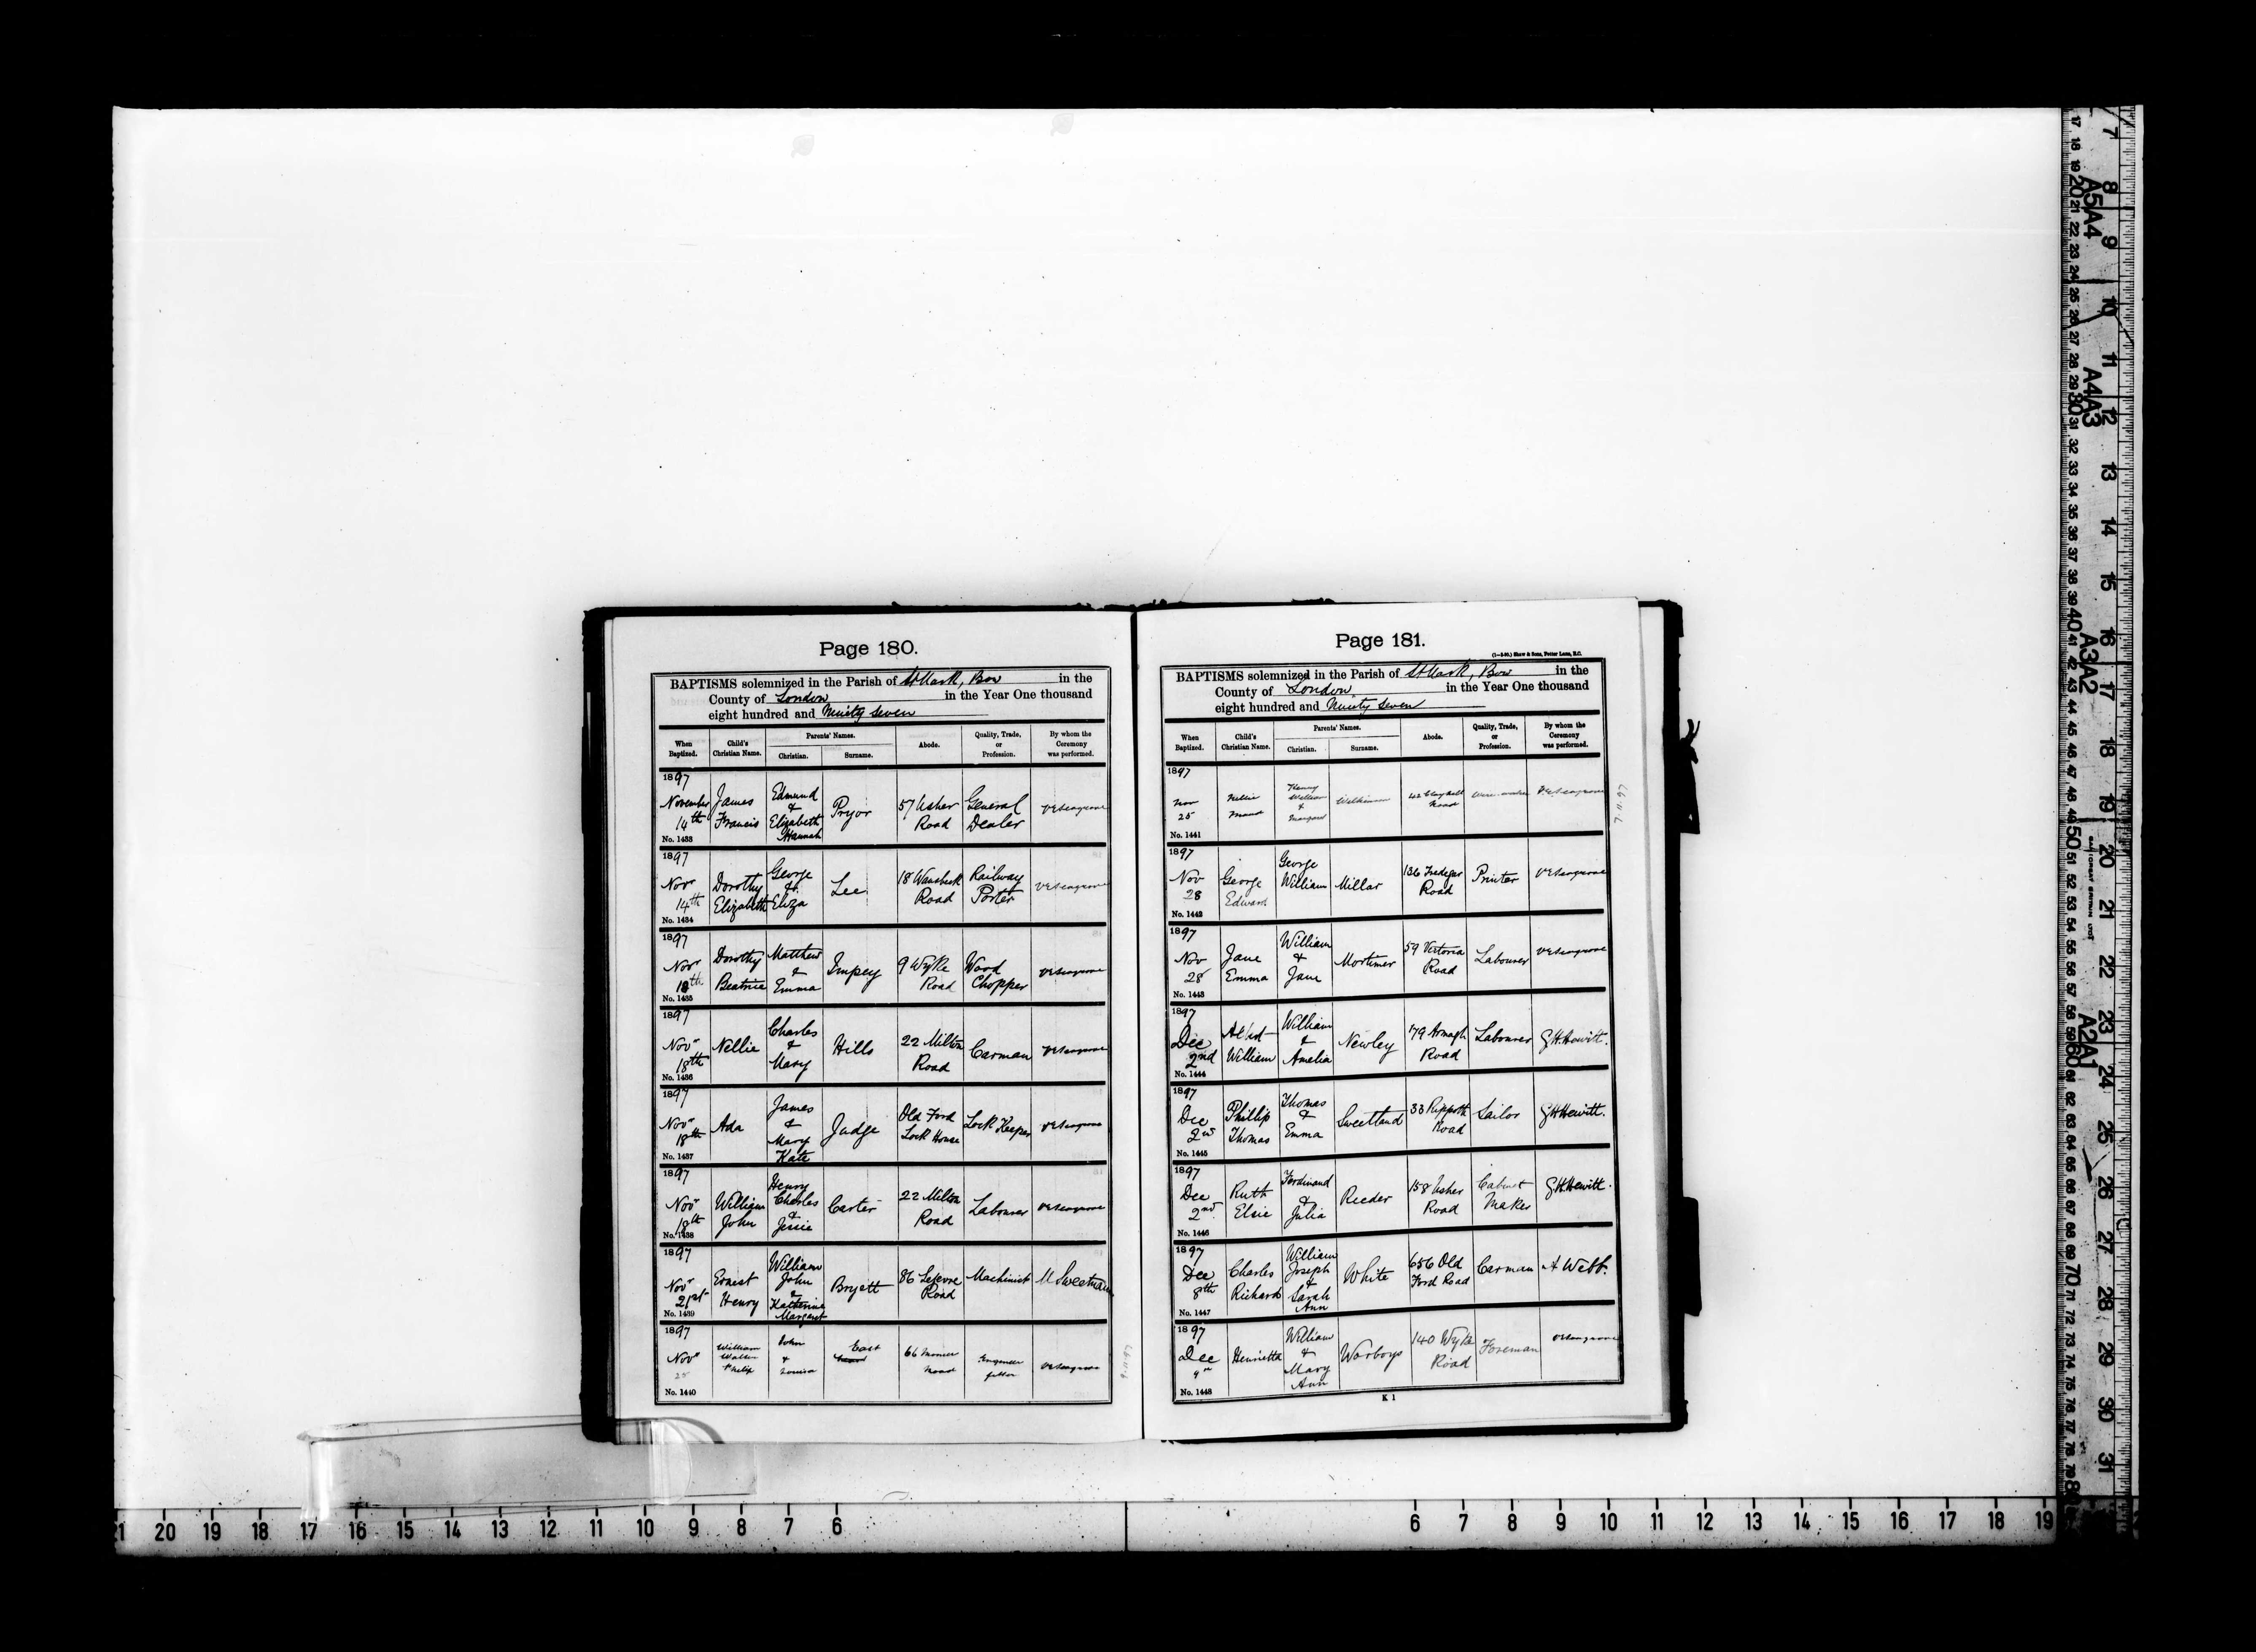 Page 180.
BAPTISMS solemnized in the Parish of St Mark, Bow in the
County of London in the Year One thousand
eight hundred and Ninety Seven
When Baptized.
Child's Christian Name.
Parents' Names.
Christian.
Surname.
Abode.
Quality, Trade, or Profession.
By whom the Ceremony was performed.
1897
November 14th
James Francis
Edmund & Elizabeth Hannah
Pryor
57 Usher Road
General Dealer
No. 1433
1897
Novr 14th
Dorothy Elizabeth
George & Eliza
Lee
18 Wansbeck Road
Railway Porter
No. 1434
1897
Novr 18th
Dorothy Beatrice
Matthew & Emma
Impey
9 Wyke Road
Wood Chopper
No. 1435
1897
Novr 18th
Nellie
Charles & Mary
Hills
22 Milton Road
Carman
No. 1436
1897
Novr 18th
Ada
James & Mary Kate
Judge
Old Ford Lock House
Lock Keeper
No. 1437
1897
Novr 18th
William John
Henry Charles & Jessie
Carter
22 Milton Road
Labourer
No. 1438
1897
Novr 21st
Ernest Henry
William John & Katherine Margaret
Bryett
86 Lefevre Road
Machinist
M Sweetman
No. 1439
1897
Novr 25
William Walter Philip
John & Louisa
East
66 Monier Road
Engineer fitter
No. 1440
Page 181.
(1—5-90.) Shaw & Sons, Fetter Lane, E.C.
BAPTISMS solemnized in the Parish of St Mark, Bow in the
County of London in the Year One thousand
eight hundred and Ninety Seven
When Baptized.
Child's Christian Name.
Parents' Names.
Christian.
Surname.
Abode.
Quality, Trade, or Profession.
By whom the Ceremony was performed.
1897
Nov 25
Nellie Maud
Henry William & Margaret
Wilkinson
42 Road
No. 1441
1897
Nov 28
George Edward
George William
Millar
136 Tredegar Road
Printer
No. 1442
1897
Nov 28
Jane Emma
William & Jane
Mortimer
59 Victoria Road
Labourer
No. 1443
1897
Dec 2nd
Albert William
William & Amelia
Newley
179 Armagh Road
Labourer
G.H. Hewitt.
No. 1444
1897
Dec 2nd
Phillip Thomas
Thomas & Emma
Sweetland
33 Ruppoth Road
Sailor
G.H. Hewitt.
No. 1445
1897
Dec 2nd
Ruth Elsie
Ferdinand & Julia
Reeder
158 Usher Road
Cabinet Maker
G.H. Hewitt.
No. 1446
1897
Dec 8th
Charles Richard
William Joseph & Sarah Ann
White
656 Old Ford Road
Carman
A Webb.
No. 1447
1897
Dec 9th
Henrietta
William & Mary Ann
Warboys
140 Wyke Road
Foreman
No. 1448
K 1
21 20 19 18 17 16 15 14 13 12 11 10 9 8 7 6
6 7 8 9 10 11 12 13 14 15 16 17 18 19
7 8 9 10 11 12 13 14 15 16 17 18 19 20 21 22 23 24 25 26 27 28 29 30 31
A5A4
A4A3
A3A2
A2A1